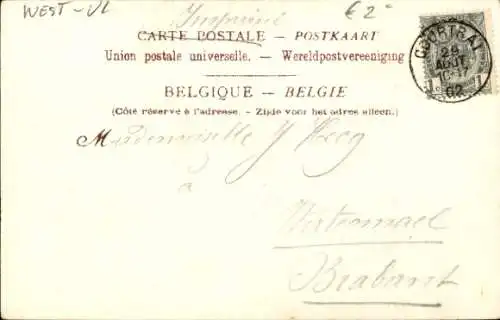 WEST-VL
Imprimé
€2
CARTE POSTALE - POSTKAART
Union postale universelle. - Wereldpostvereeniging
BELGIQUE - BELGIE
(Côté réservé à l'adresse. - Zijde voor het adres alleen.)
COURTRAI
28
AOUT
02
1 1
Mademoiselle J
à
Brabant